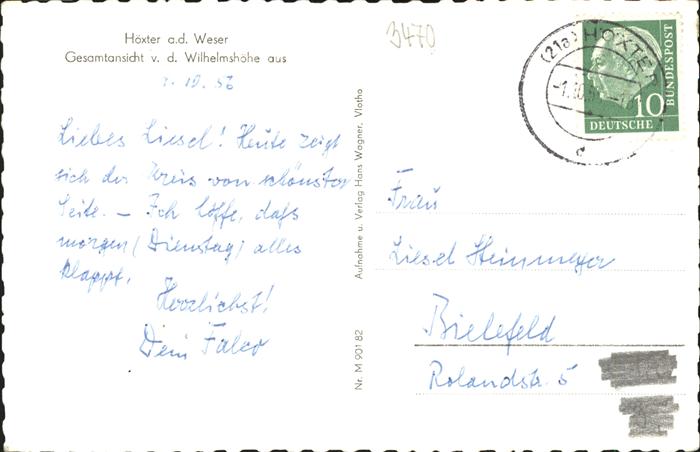 Höxter a.d. Weser
Gesamtansicht v. d. Wilhelmshöhe aus
1.10.56
Liebes Liesel! Heute zeigt
sich der Kreis von schönster
Seite. – Ich hoffe, daß
morgen (Dienstag) alles
klappt.
Herzlichst!
Dein Falco
Aufnahme u. Verlag Hans Wagner, Vlotho
Nr. M 901 82
3470
(21a) HÖXTER
-1.10.5
d
10
DEUTSCHE
BUNDESPOST
Frau
Liesel Steinmeyer
Bielefeld
Rolandstr. 5